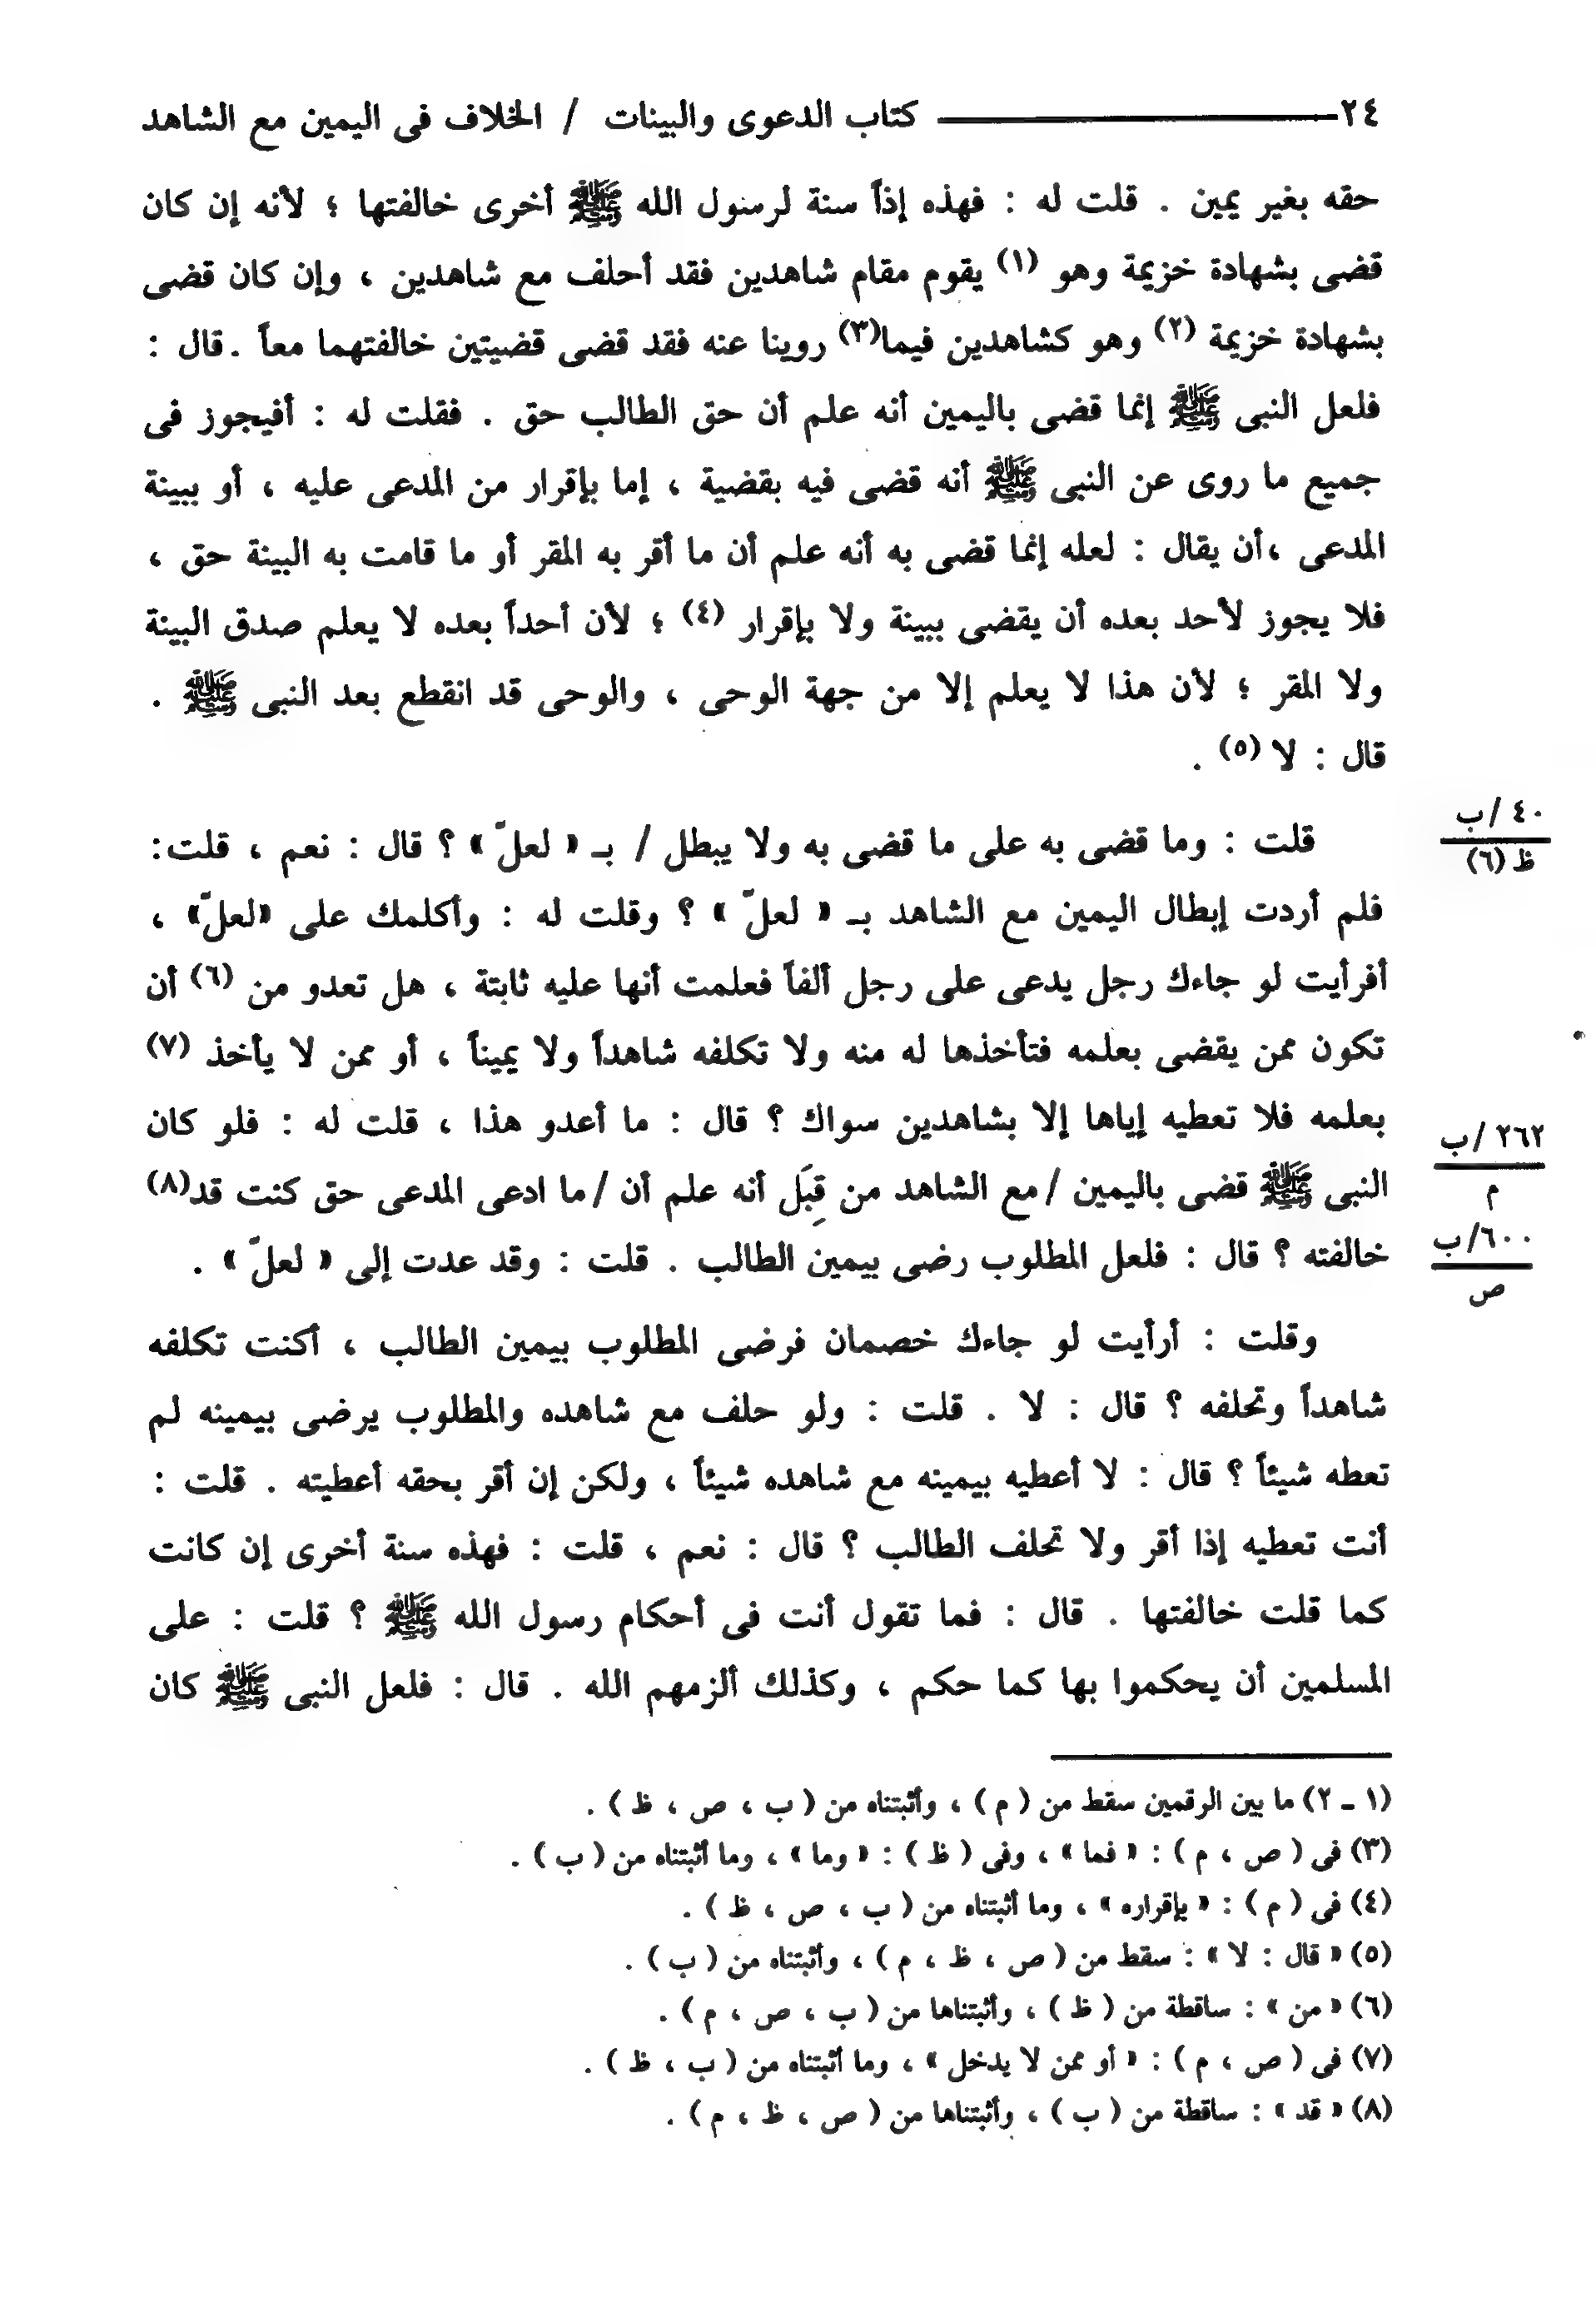 ٢٤ كتاب الدعوى والبينات / الخلاف فى اليمين مع الشاهد
حقه بغير يمين . قلت له : فهذه إذاً سنة لرسول الله ﷺ أخرى خالفتها ؛ لأنه إن كان
قضى بشهادة خزيمة وهو (١) يقوم مقام شاهدين فقد أحلف مع شاهدين ، وإن كان قضى
بشهادة خزيمة (٢) وهو كشاهدين فيما(٣) روينا عنه فقد قضى قضيتين خالفتهما معاً . قال :
فلعل النبى ﷺ إنما قضى باليمين أنه علم أن حق الطالب حق . فقلت له : أفيجوز فى
جميع ما روى عن النبى ﷺ أنه قضى فيه بقضية ، إما بإقرار من المدعى عليه ، أو ببينة
المدعى ، أن يقال : لعله إنما قضى به أنه علم أن ما أقر به المقر أو ما قامت به البينة حق ،
فلا يجوز لأحد بعده أن يقضى ببينة ولا بإقرار (٤) ؛ لأن أحداً بعده لا يعلم صدق البينة
ولا المقر ؛ لأن هذا لا يعلم إلا من جهة الوحى ، والوحى قد انقطع بعد النبى ﷺ .
قال : لا (٥) .
٤٠ /ب
ظ (٦)
قلت : وما قضى به على ما قضى به ولا يبطل / بـ « لعلّ » ؟ قال : نعم ، قلت:
فلم أردت إبطال اليمين مع الشاهد بـ « لعلّ » ؟ وقلت له : وأكلمك على «لعلّ» ،
أفرأيت لو جاءك رجل يدعى على رجل ألفاً فعلمت أنها عليه ثابتة ، هل تعدو من (٦) أن
تكون ممن يقضى بعلمه فتأخذها له منه ولا تكلفه شاهداً ولا يميناً ، أو ممن لا يأخذ (٧)
بعلمه فلا تعطيه إياها إلا بشاهدين سواك ؟ قال : ما أعدو هذا ، قلت له : فلو كان
٢٦٢ /ب
م
النبى ﷺ قضى باليمين /مع الشاهد من قِبَل أنه علم أن /ما ادعى المدعى حق كنت قد(٨)
٦٠٠/ب
ص
خالفته ؟ قال : فلعل المطلوب رضى بيمين الطالب . قلت : وقد عدت إلى « لعلّ » .
وقلت : أرأيت لو جاءك خصمان فرضى المطلوب بيمين الطالب ، أكنت تكلفه
شاهداً وتحلفه ؟ قال : لا . قلت : ولو حلف مع شاهده والمطلوب يرضى بيمينه لم
تعطه شيئاً ؟ قال : لا أعطيه بيمينه مع شاهده شيئاً ، ولكن إن أقر بحقه أعطيته . قلت :
أنت تعطيه إذا أقر ولا تحلف الطالب ؟ قال : نعم ، قلت : فهذه سنة أخرى إن كانت
كما قلت خالفتها . قال : فما تقول أنت فى أحكام رسول الله ﷺ ؟ قلت : على
المسلمين أن يحكموا بها كما حكم ، وكذلك ألزمهم الله . قال : فلعل النبى ﷺ كان
(١ ـ ٢) ما بين الرقمين سقط من ( م ) ، وأثبتناه من ( ب ، ص ، ظ ) .
(٣) فى ( ص ، م ) : « فما » ، وفى ( ظ ) : « وما » ، وما أثبتناه من ( ب ) .
(٤) فى ( م ) : « بإقراره » ، وما أثبتناه من ( ب ، ص ، ظ ) .
(٥) « قال : لا » : سقط من ( ص ، ظ ، م ) ، وأثبتناه من ( ب ) .
(٦) « من » : ساقطة من ( ظ ) ، وأثبتناها من ( ب ، ص ، م ) .
(٧) فى ( ص ، م ) : « أو ممن لا يدخل » ، وما أثبتناه من ( ب ، ظ ) .
(٨) « قد » : ساقطة من ( ب ) ، وأثبتناها من ( ص ، ظ ، م ) .